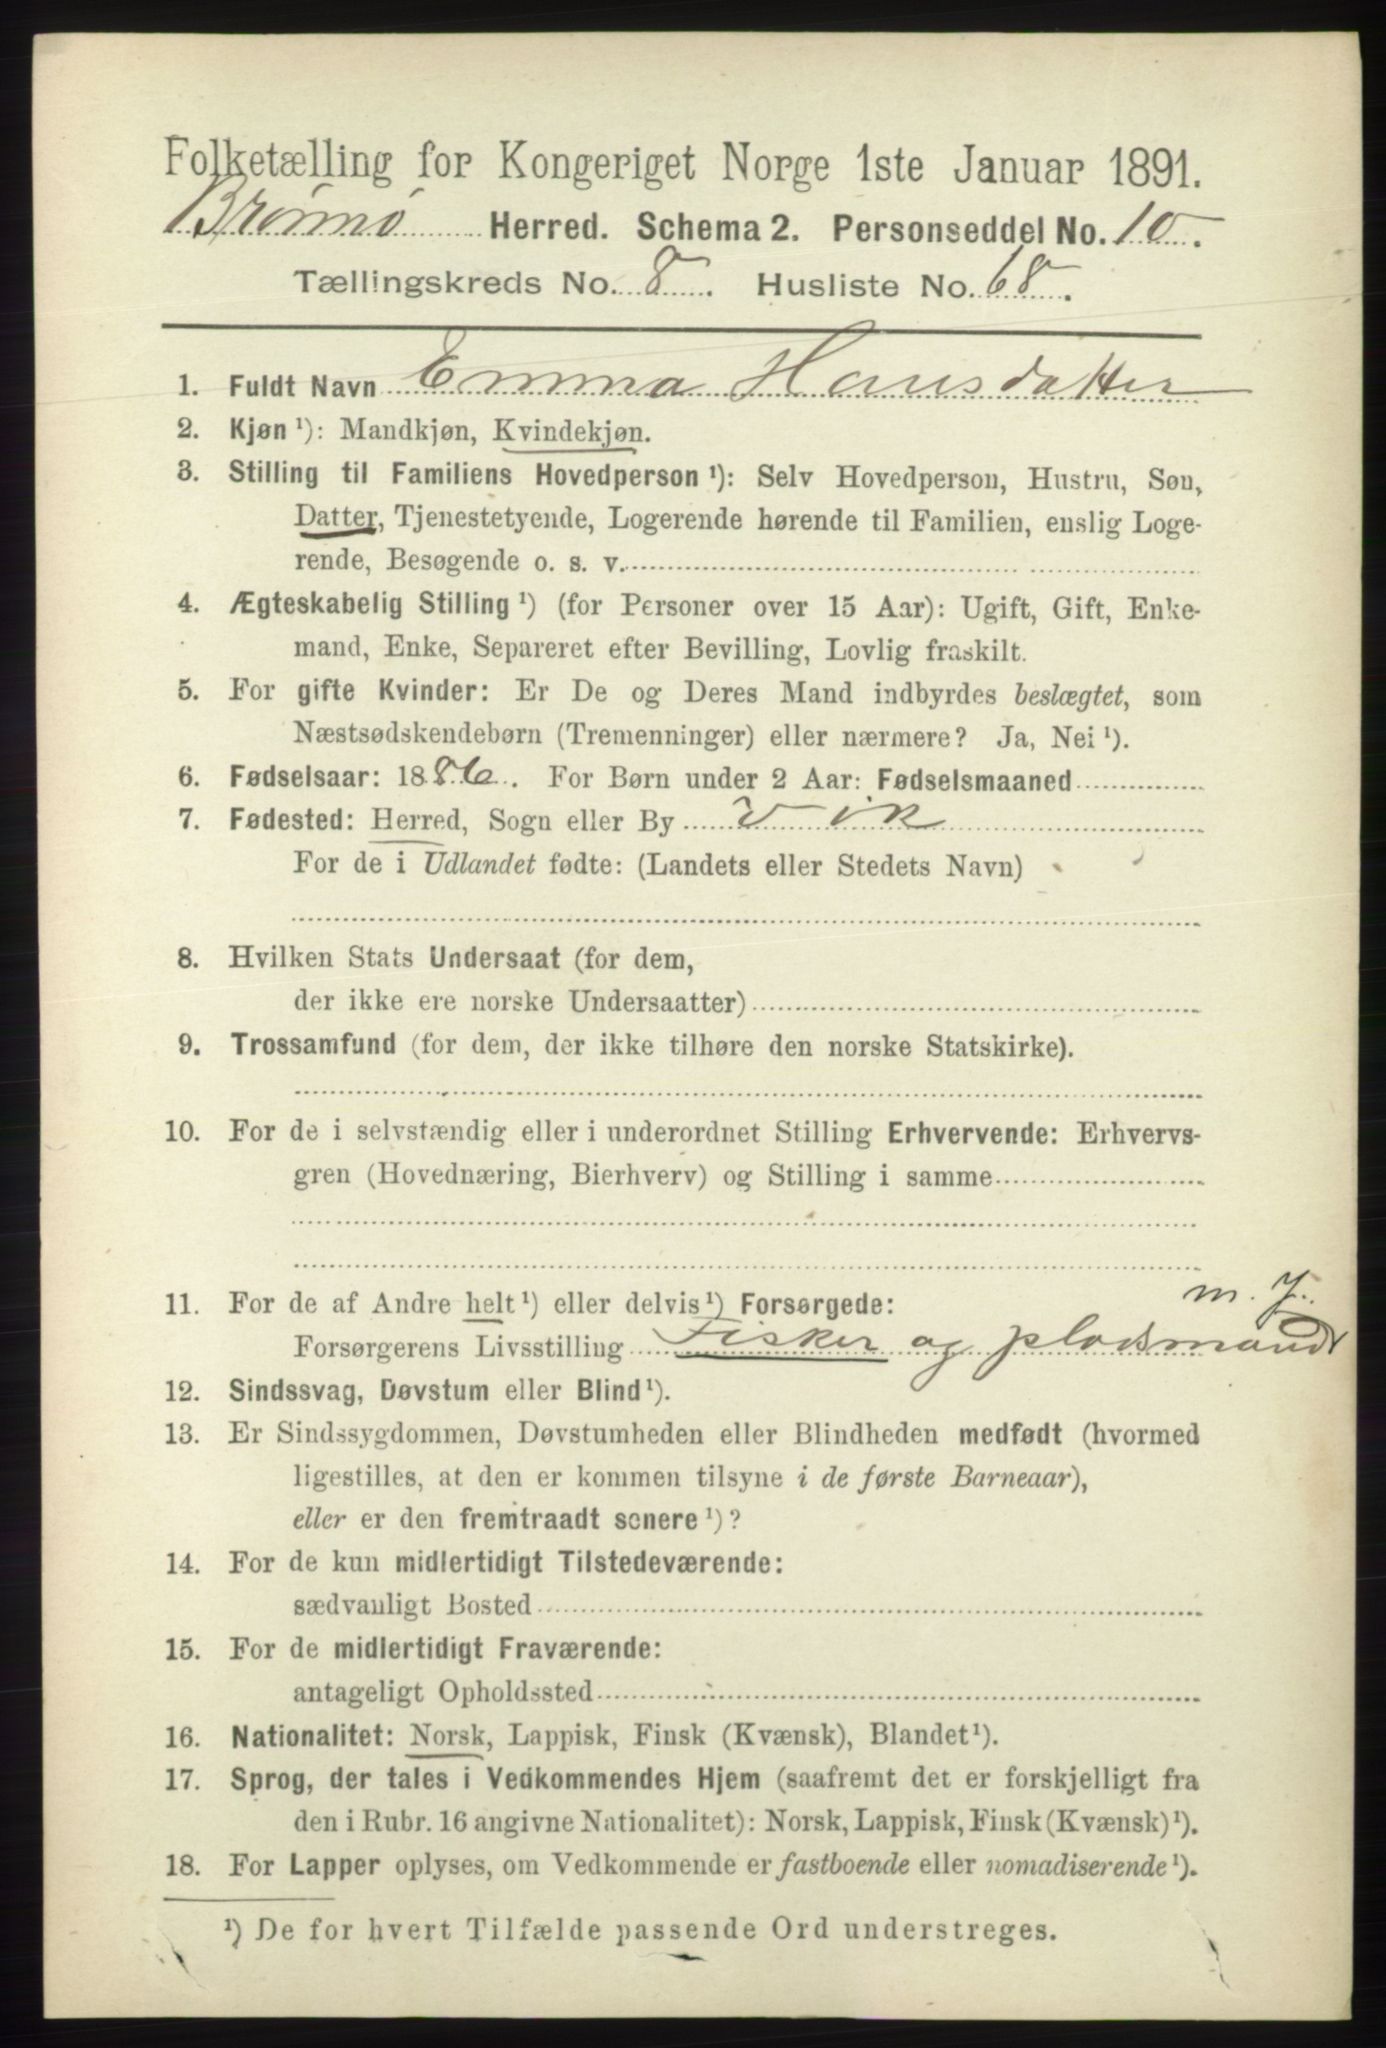 Folketælling for Kongeriget Norge 1ste Januar 1891.
Brønnø Herred. Schema 2. Personseddel No. 10.
Tællingskreds No. 8. Husliste No. 68.
1. Fuldt Navn Emma Hansdatter
2. Kjøn ¹): Mandkjøn, Kvindekjøn.
3. Stilling til Familiens Hovedperson ¹): Selv Hovedperson, Hustru, Søn,
Datter, Tjenestetyende, Logerende hørende til Familien, enslig Loge-
rende, Besøgende o. s. v.
4. Ægteskabelig Stilling ¹) (for Personer over 15 Aar): Ugift, Gift, Enke-
mand, Enke, Separeret efter Bevilling, Lovlig fraskilt.
5. For gifte Kvinder: Er De og Deres Mand indbyrdes beslægtet, som
Næstsødskendebørn (Tremenninger) eller nærmere? Ja, Nei ¹).
6. Fødselsaar: 1886. For Børn under 2 Aar: Fødselsmaaned
7. Fødested: Herred, Sogn eller By Vik
For de i Udlandet fødte: (Landets eller Stedets Navn)
8. Hvilken Stats Undersaat (for dem,
der ikke ere norske Undersaatter)
9. Trossamfund (for dem, der ikke tilhøre den norske Statskirke).
10. For de i selvstændig eller i underordnet Stilling Erhvervende: Erhvervs-
gren (Hovednæring, Bierhverv) og Stilling i samme
m. J.
11. For de af Andre helt ¹) eller delvis ¹) Forsørgede:
Forsørgerens Livsstilling Fisker og pladsmand
12. Sindssvag, Døvstum eller Blind ¹).
13. Er Sindssygdommen, Døvstumheden eller Blindheden medfødt (hvormed
ligestilles, at den er kommen tilsyne i de første Barneaar),
eller er den fremtraadt senere ¹)?
14. For de kun midlertidigt Tilstedeværende:
sædvanligt Bosted
15. For de midlertidigt Fraværende:
antageligt Opholdssted
16. Nationalitet: Norsk, Lappisk, Finsk (Kvænsk), Blandet ¹).
17. Sprog, der tales i Vedkommendes Hjem (saafremt det er forskjelligt fra
den i Rubr. 16 angivne Nationalitet): Norsk, Lappisk, Finsk (Kvænsk) ¹).
18. For Lapper oplyses, om Vedkommende er fastboende eller nomadiserende ¹).
¹) De for hvert Tilfælde passende Ord understreges.